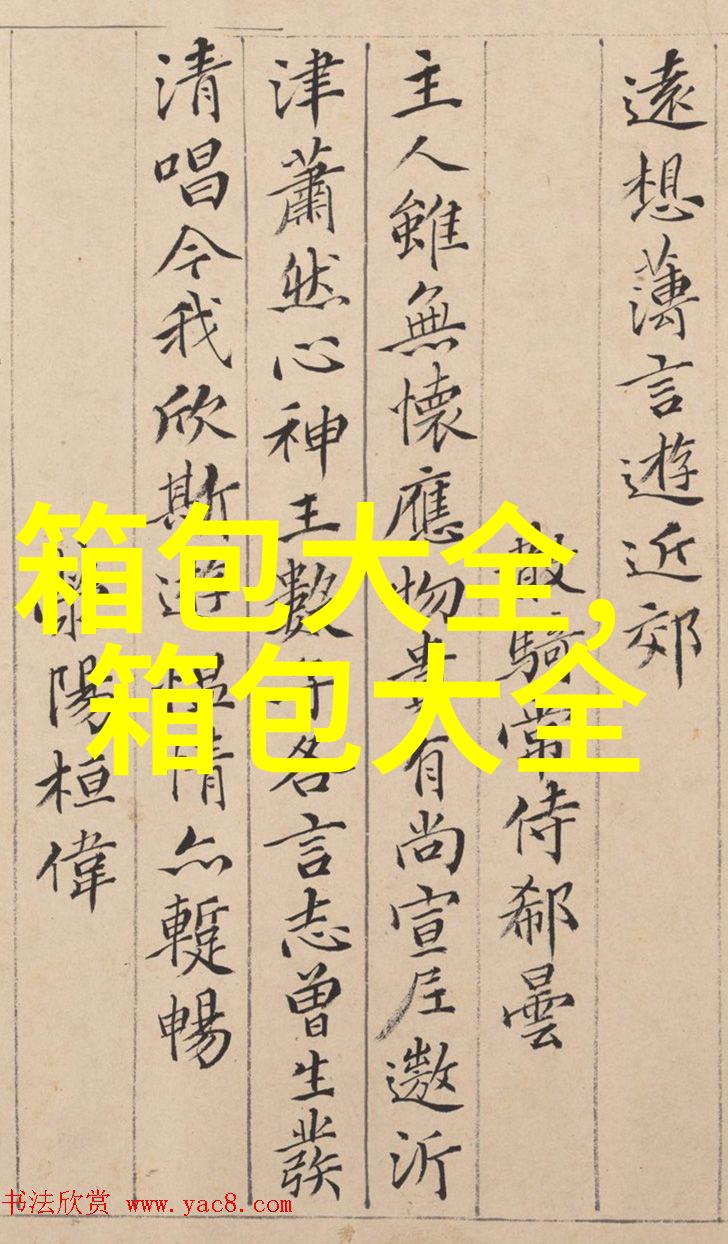 遠想薄言遊近郊
散騎常侍郗曇
主人雖無懷應物貴有尚宣尼遨沂
津蕭然心神王數子各言志曾生發
清唱今我欣斯遊慍情亦暫暢
陽桓偉
箱包大全,
箱包大全
书法欣赏 www.yac8.com